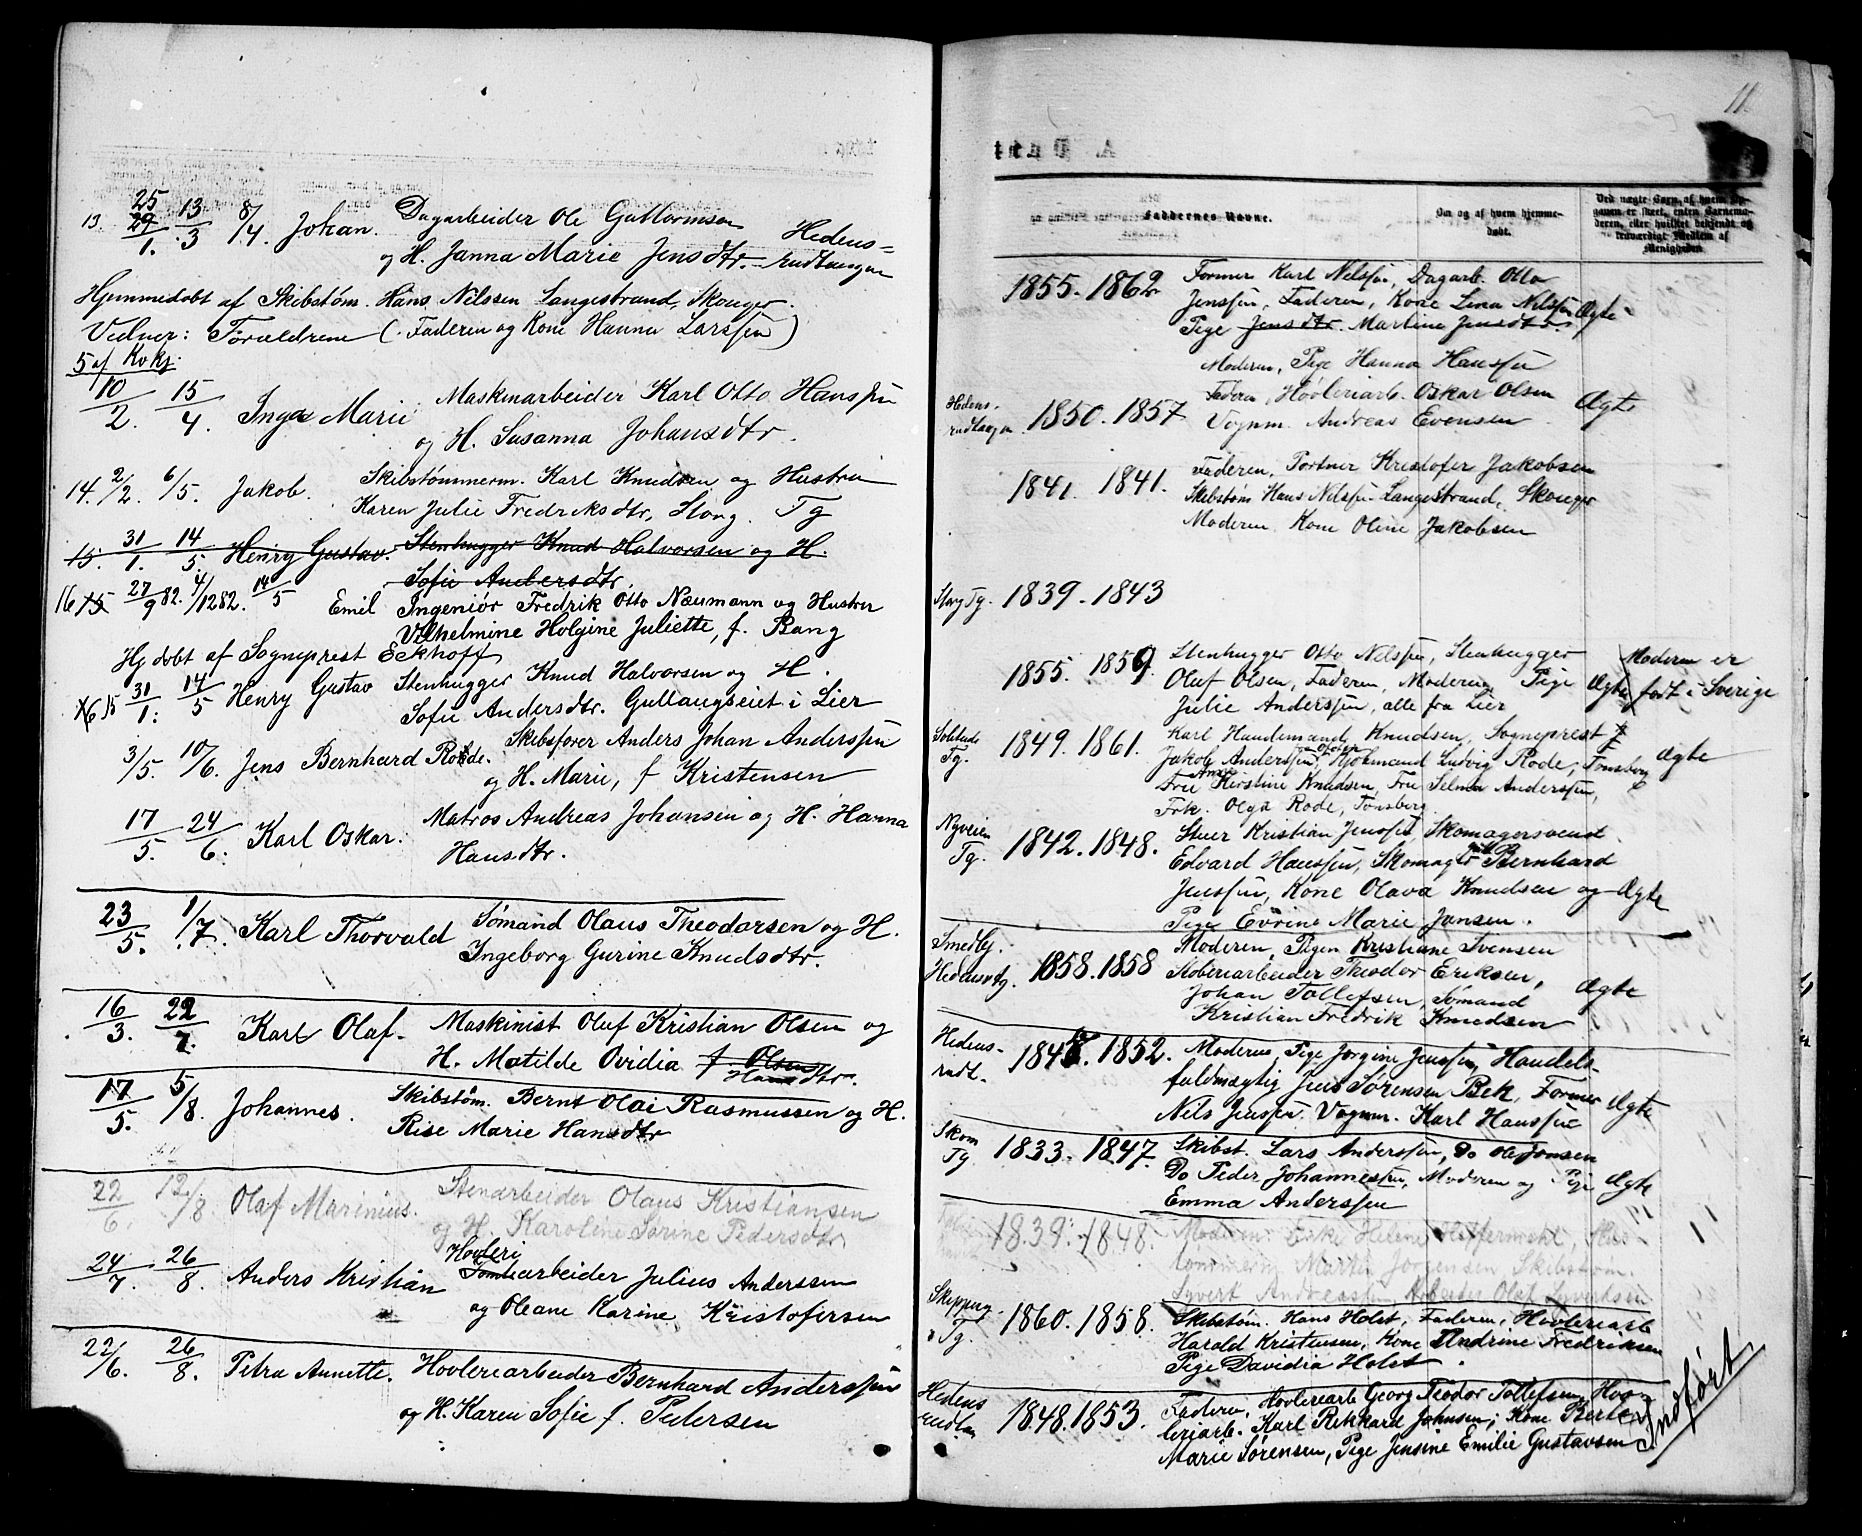 25
13. 29/1. 13/3 8/4 Johan. Dagarbeider Ole Guttormsen Hedens-
og H. Janna Marie Jensdtr. rudtangen
Hjemmedøbt af Skibstøm. Hans Nilssen Langestrand, Skouger.
Vidner: Forældrene (Faderen og Kone Hanna Larssen)
5 af Kvkj.
10/2. 15/4. Inga Marie Maskinarbeider Karl Otto Hanssen
og H. Susanna Johansdtr.
14. 2/2. 6/5. Jakob. Skibstømmerm. Karl Knudsen og Hustru
Karen Julie Fredriksdtr, Storg. Tg
15. 31/1. 14/5. Henry Gustav. Stenhugger Knud Halvorsen og H.
Sofie Andersdtr.
16 15 27/9 82. 4/12 82. 14/5 Emil Ingeniør Fredrik Otto Næumann og Hustru
Vilhelmine Holgine Juliette, f. Bang
Hj døbt af Sogneprest Eckhoff
16 15 31/1. 14/5 Henry Gustav Stenhugger Knud Halvorsen og H.
Sofie Andersdtr. Gullaugseiet i Lier
3/5. 10/6. Jens Bernhard Rode. Skibsfører Anders Johan Anderssen
og H. Marie, f Kristensen
17/5. 24/6. Karl Oskar. Matros Andreas Johansen og H. Hanna
Hansdtr.
23/5. 1/7. Karl Thorvald Sømand Olaus Theodorsen og H.
Ingeborg Gurine Knudsdtr.
16/3. 22/7. Karl Olaf. Maskinist Oluf Kristian Olsen og
H. Matilde Ovidia f Olsen
Hansdtr.
17/5. 5/8. Johannes. Skibstøm. Bernt Olai Rasmussen og H.
Rise Marie Hansdtr
22/6. 12/8. Olaf Marinius. Stenarbeider Olaus Kristiansen
og H. Karoline Sørine Pedersdtr
Høvleri
24/7. 26/8. Anders Kristian Tomtearbeider Julius Anderssen
og Oleane Karine Kristofersen
22/6. 26/8. Petra Annette. Høvleriearbeider Bernhard Anderssen
og H. Karen Sofie f. Pedersen
11.
Faddernes Navne.
Om og af hvem hjemme-
døbt.
1855. 1862. Former Karl Nilssen, Dagarb. Otto
Jenssen, Faderen, Kone Lina Nilssen Ægte
Pige Jensdtr. Martine Jensdtr.
Moderen, Pige Hanna Hanssen
Hedens- 1850. 1857 Faderen, Høvleriarb. Oskar Olsen Ægte
rudtangen Vognm. Andreas Evensen
1841. 1841. Faderen, Portner Kristofer Jakobsen
Skibstøm Hans Nilssen Langestrand, Skouger
Moderen Kone Oline Jakobsen
Storg Tg. 1839. 1843
1855. 1859. Stenhugger Otto Nilssen, Stenhugger Moderen er
Oluf Olsen, Faderen, Moderen, Pige Ægte født i Sverige
Julie Anderssen, alle fra Lier
Tg. 1849. 1861. Karl Handemand Knudsen, Sogneprest
Jakob Anderssen, Kjøbmand Ludvig Rode, Tønsberg Ægte
Frue Kirstine Knudsen, Frue Selma Anderssen,
Frk. Olga Rode, Tønsberg
Nyveien
Tg. 1842. 1848. Stuer Kristian Jenssen Skomagersvend
Edvard Hanssen, Skomager Bernhard
Jenssen, Kone Olava Knudsen og Ægte
Pige Evrine Marie Jansen.
Smedbj. Moderen, Pigen Kristiane Svensen
1858. 1858 Arbeider Theodor Eriksen, Ægte
Johan Tollefsen, Sømand
Kristian Fredrik Knudsen
Hedens- 1848. 1852. Moderen, Pige Jørgine Jenssen, Handels-
rudt. fuldmægtig Jens Sørensen Bek, Former Ægte
Nils Jenssen. Vognm. Karl Hanssen
Tg 1833. 1847. Skibst. Lars Anderssen, Do Ole Jonsen
Do Peder Johannessen, Moderen og Pige Ægte
Emma Anderssen
1839. 1848. Moderen. Enke Helene
Martin Jørgensen Skibstøm.
Syvert Andreassen, Arbeider Olaf Syvertsen
Skipperg.
Tg. 1860. 1858. Skibstøm. Hans Holst, Faderen, Høvleriarb
Harald Kristensen, Kone Andrine Fredriksen
Pige Davidia Holst.
Hedens 1848. 1853. Faderen, Høvleriarb Georg Teodor Tollefsen, Høv-
rudtan leriarb. Karl Rikkard Johnsen, Kone Berte
Marie Sørensen, Pige Jensine Emilie Gustavsen
Indført